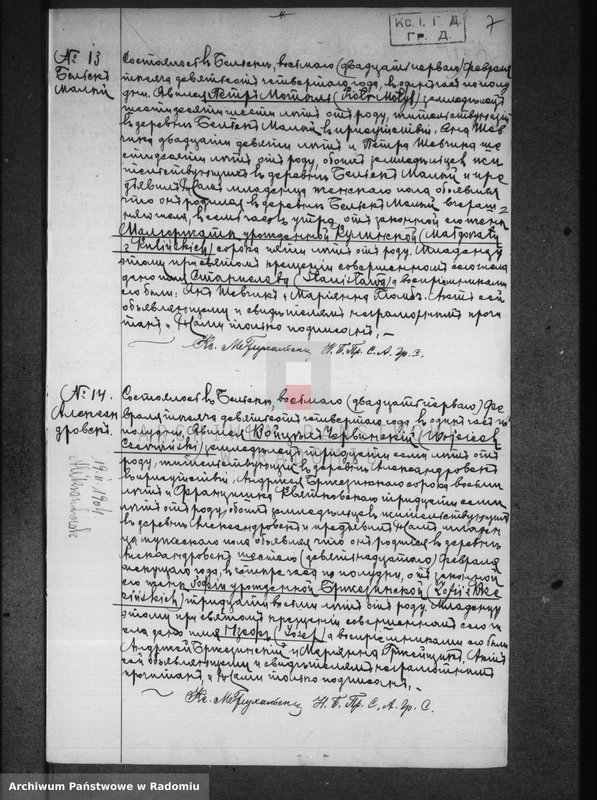 Кс. I. Г Д.
Гр. Д.
7
№ 13
Бельскъ
Малый
Состоялось въ Бельскѣ, восьмаго (двадцать перваго) Февраля
тысяча девятьсотъ четвертаго года, въ часъ по полу
дни. Явился Петръ Мотыль (Piotr Motyl) земледѣлецъ
шестидесяти шести лѣтъ отъ роду, жительствующій
въ деревнѣ Бельскъ Малый въ присутствіи: Яна Шев
чика двадцати девяти лѣтъ и Петра Шевчика ше
стидесяти лѣтъ отъ роду, обоихъ земледѣльцевъ жи
тельствующихъ въ деревнѣ Бельскъ Малый и пре
дъявилъ Намъ младенца женскаго пола объявляя
что онъ родился въ деревнѣ Бельскъ Малый вчераш
няго числа, въ семь часъ утра, отъ законной его жены
Малгоржаты урожденной Кулинской (Małgorzaty
z Kulińskich) сорока пяти лѣтъ отъ роду. Младенцу
этому при святомъ крещеніи совершенномъ сего числа
дано имя Станислава (Stanisława) а воспріемниками
его были: Янъ Шевчикъ и Маріанна. Актъ сей
объявляющему и свидѣтелямъ неграмотнымъ прочи
танъ и Нами только подписанъ. —
Кс. Н. Б. Пр. С. А. Гр. С.
№ 14.
Александ
ровскъ.
19.II.1904
Состоялось въ Бельскѣ, восьмаго (двадцать перваго) Фе
враля тысяча девятьсотъ четвертаго года въ одинъ часъ по
полудни. Явился Войцехъ Червинскій (Wojciech
Czerwiński) земледѣлецъ тридцати семи лѣтъ отъ
роду, жительствующій въ деревнѣ Александровскъ
въ присутствіи: Андрея Бржезинскаго сорока восьми
лѣтъ и Францишка Квятковскаго тридцати семи
лѣтъ отъ роду, обоихъ земледѣльцевъ жительствующихъ
въ деревнѣ Александровскъ и предъявилъ Намъ младен
ца мужескаго пола объявляя что онъ родился въ деревнѣ
Александровскъ шестаго (девятнадцатаго) Февраля
текущаго года, въ четыре часа по полудни, отъ законной
его жены Зофіи урожденной Бржезинской (Zofii z Brze
zińskich) тридцати восьми лѣтъ отъ роду. Младенцу
этому при святомъ крещеніи совершенномъ сего чи
сла дано имя Іосифъ (Józef) а воспріемниками его были
Андрей Бржезинскій и Маріанна. Актъ
сей объявляющему и свидѣтелямъ неграмотнымъ
прочитанъ, и Нами только подписанъ. —
Кс. Н. Б. Пр. С. А. Гр. С.
Archiwum Państwowe w Radomiu